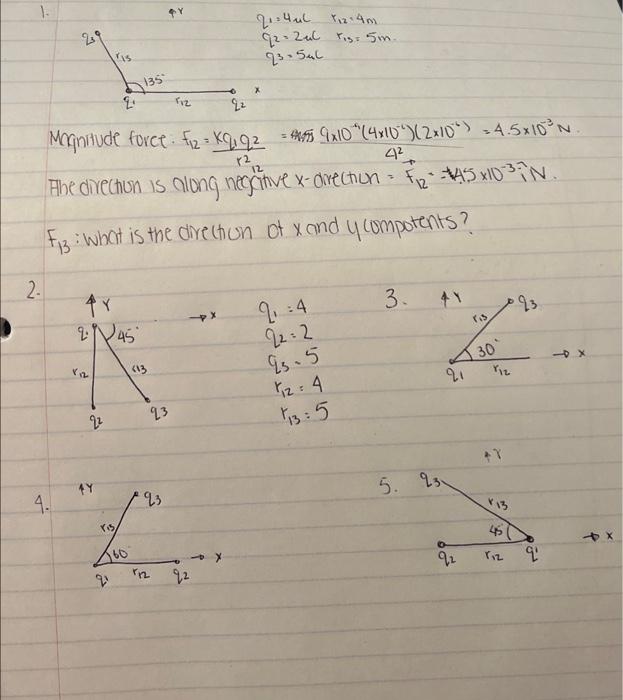 1. ↑Y q1=4uC r12=4m
q3 q2=2uC r13=5m.
r13 q3=5uC
135° x
q1 r12 q2
Magnitude force: F12 = Kq1q2 / r²12 = 9x10⁻⁹(4x10⁻⁶)(2x10⁻⁶) / 4² = 4.5x10⁻³ N.
The direction is along negative x-direction = F12 = -4.5x10⁻³ î N.
F13: what is the direction of x and y compotents?
2. ↑Y → x q1=4
q1 45° q2=2
r12 r13 q3=5
q2 q3 r12=4
r13=5
3. ↑Y q3
r13
30° → x
q1 r12
4. ↑Y q3
r13
60° → x
q1 r12 q2
5. q3 ↑Y
r13
45° → x
q2 r12 q1